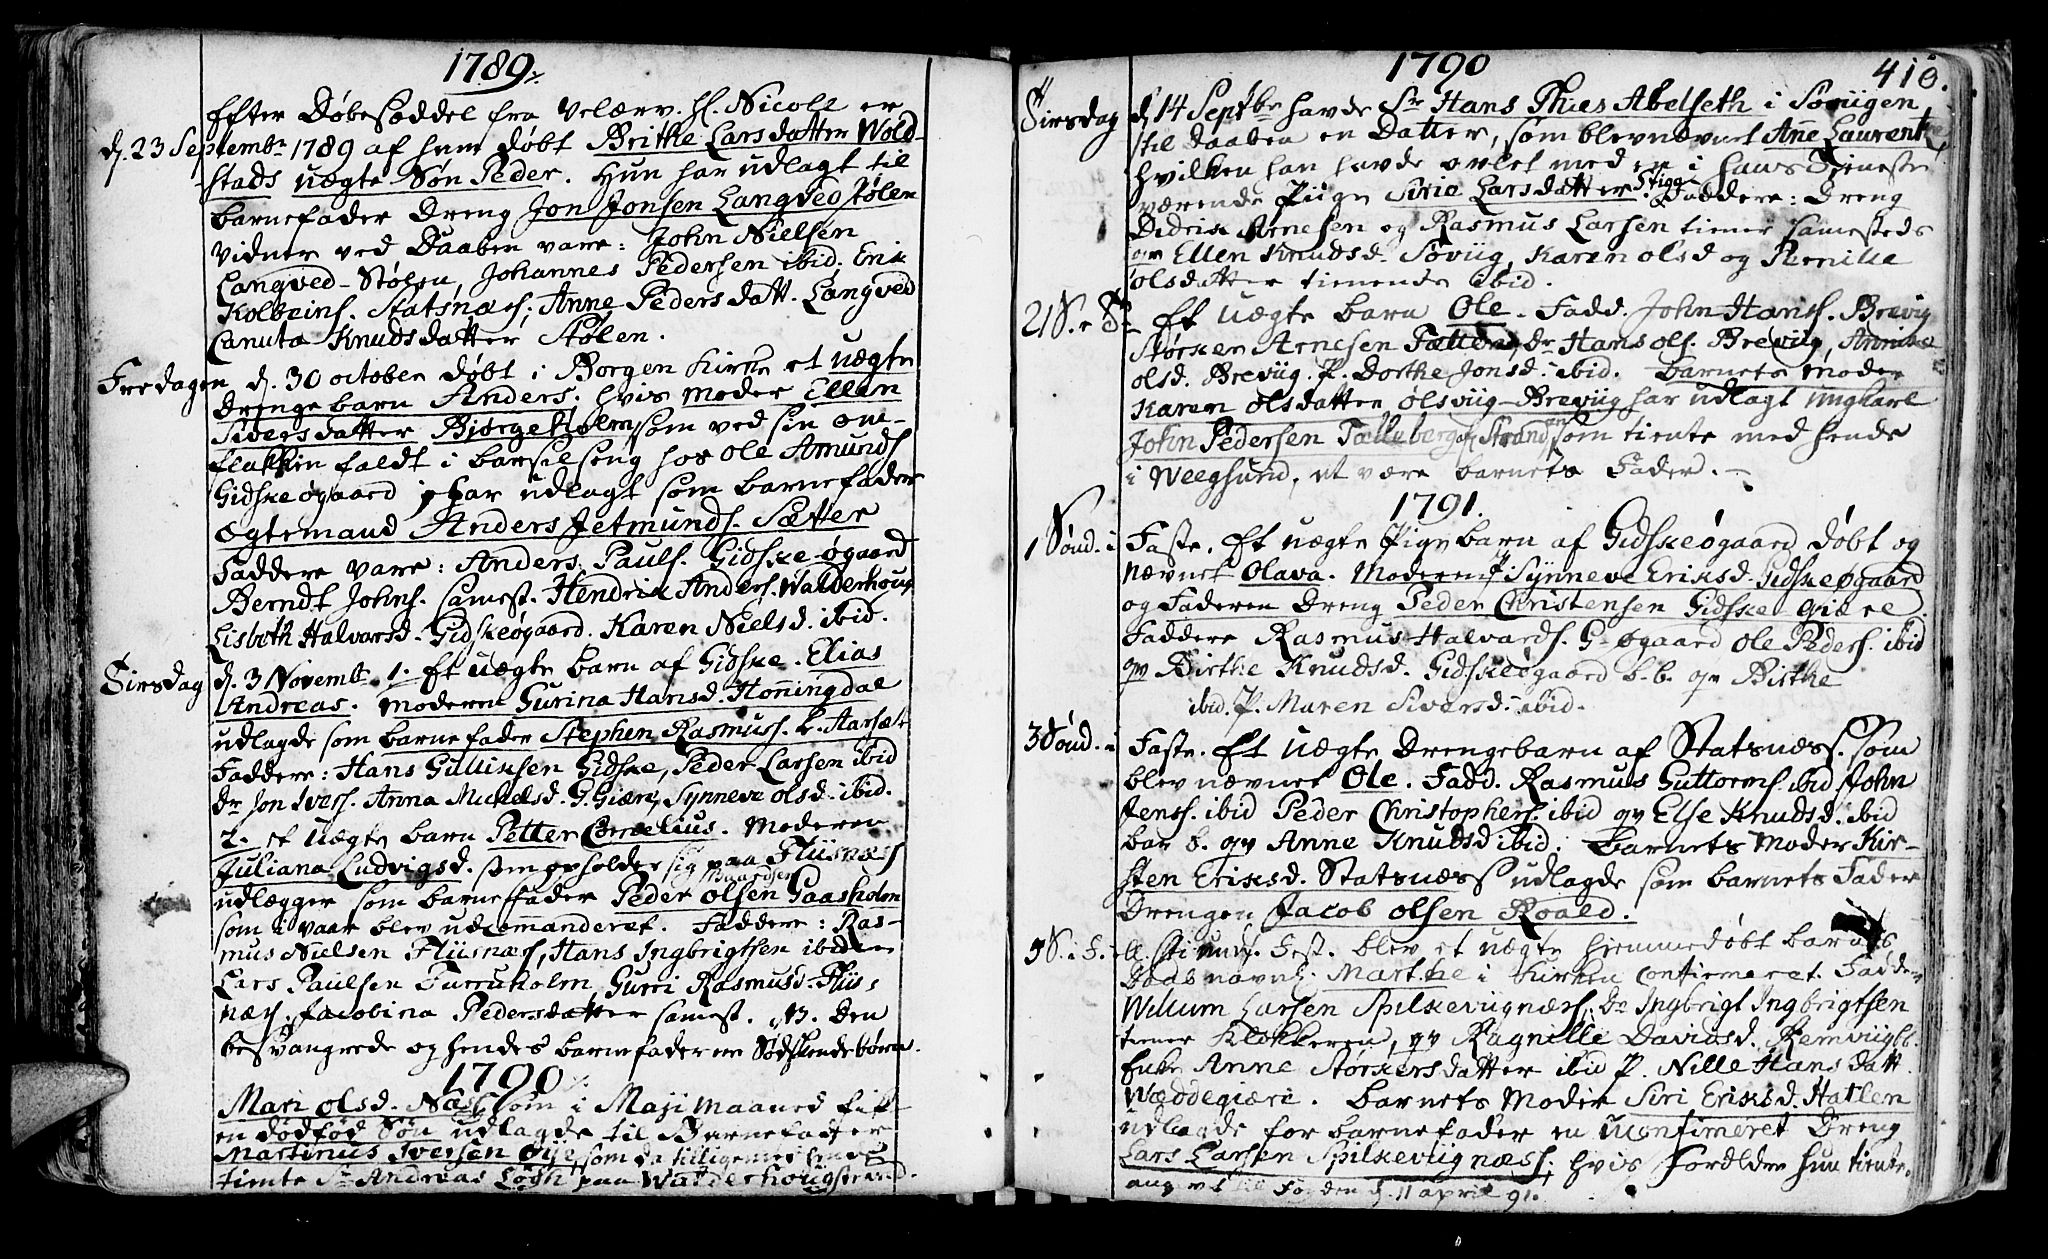 1789
Efter Døbesæddel fra velærv. H. Nicole er
d. 23 Septembr 1789 af ham døbt Brithe Larsdatter Wold-
stads uægte Søn Peder. Hun har udlagt til
barnefader Dreng Jon Jonsen Langved Stølen
Vidner ved Daaben vare: John Nielsen
Langved-Stølen, Johannes Pedersen ibid. Erik
Kolbeins. Statsnæs. Anne Pedersdatt. Langved
Canuta Knudsdatter Stølen.
Fredagen d. 30 october døbt i Borgen Kirke et uægte
Drenge barn Anders. hvis moder Ellen
Siversdatter Bjørgeholm, som ved sin om-
flakken faldt i barselseng hos Ole Amunds
Gidskeøgaard har udlagt som barnefader
Ægtemand Anders Jetmunds. Sætter
Faddere vare: Anders Pauls. Gidske-øgaard
Berndt Johns. samest. Hendrik Anders. Walderhoug
Lisbeth Halvarsd. Gidskeøgaard. Karen Nielsd. ibid.
Tirsdag d. 3 Novembr 1. Et uægte barn af Gidske. Elias
Andreas. moderen Gurina Hansd. Honningdal
udlagde som barnefader Stephen Rasmuss. b. Aarsæt
Faddere: Hans Gullixsen Gidske, Peder Larsen ibid
Dr Jon Ivers. Anna Michelsd. G. Giære, Synneve olsd. ibid.
2. et uægte barn Petter Cornelius. Moderen
Juliana Ludvigsd. som opholder sig paa Fliisnæs
udlægger som barnefader Peder olsen Baardsen Gaasholm
som i vaar blev udcommanderet. Faddere: Ras-
mus Nielsen Fliisnæs, Hans Ingbrigtsen ibid
Lars Paulsen Furruholm, Gurri Rasmusd. Fliis-
næs. Jacobina Pedersdatter samest. NB. Den
besvangrede og hendes barnefader ere Sødskendebørn.
1790
Mari olsd. Næss som i Maji Maaned fik
en dødfød Søn udlagde til Barnefader
Martinus Iversen Øije, som da tilligemed hende
tiente Sr Andreas Løgh paa Walderhougstrand.
1790
410.
Tirsdag d. 14 Septbr havde Sr Hans Thues Abelseth i Sovügen
til Daaben en Datter, som blev nævnt Anne Laurentze
hvilken han havde avlet med en i hans Tieneste
værende Piige Sirie Larsdatter Stigge Faddere: Dreng
Didrik Arnesen og Rasmus Larsen tiener samesteds
qv Ellen Knudsd. Soviig, Karen olsd og Pernille
olsdatter tienende ibid.
21 S. e Tr Et uægte barn Ole. Fadd. John Hans. Brevig
Størker Arnesen Dr Hans ols. Breviig, Annike
olsd. Breviig. P. Dorthe Jonsd. ibid. Barnets moder
Karen olsdatter olsviig-Breviig har udlagt ungkarl
John Pedersen af Stranden som tiente med hende
i Weegsund, at være barnets Fader.
1791.
1 Sønd. i Faste. Et uægte Pigebarn af Gidskeøgaard døbt og
nævnet Olava. Moderen P. Synneve Eriksd. Gidskeøgaard
og Faderen Dreng Peder Christensen Gidske-Giære.
Faddere Rasmus Halvards. G-øgaard Ole Peders. ibid
qv Birthe Knudsd. Gidskeøgaard b.b. qv Birthe
ibid. P. Maren Siversd. ibid.
3 Sønd. i Faste. Et uægte Drengebarn af Statsnæss. som
blev nævnet Ole. Fadd. Rasmus Guttorms. ibid John
Jenss. ibid Peder Christophers. ibid qv Else Knudsd. ibid
bar b. qv Anne Knudsd ibid. Barnets Moder Kir-
sten Eriksd. Statsnæss udlagde som barnets Fader
Drengen Jacob olsen Roald.
blev et uægte hjemmedøbt barns
Daabsnavn Marthe i Kirken confirmeret. Fadder
Willum Larsen Spilkeviignæs, Dr Ingbrigt Ingbrigtsen
tiener Klokkeren, qv Ragnille Davidsd. Remviig b.b.
Enke Anne Størkersdatter ibid P. Nille Hansdatt.
Wæddegiære. Barnets Moder Siri Eriksd. Hatlen
udlagde for barnefader en uconfirmeret Dreng
Lars Larsen Spilkeviignæss, hvis Forældre hun tiente.
til Fogden d. 11 april 91.